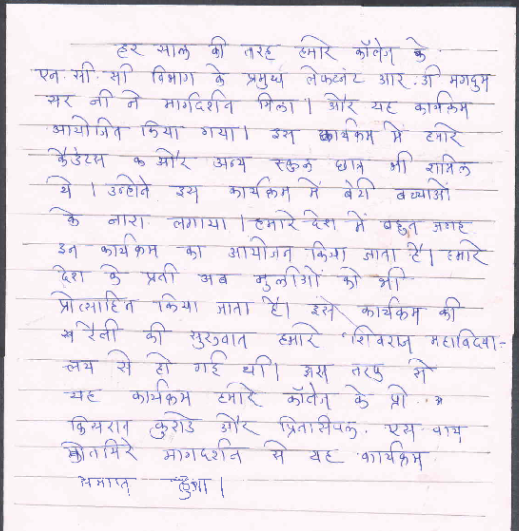 हर साल की तरह हमारे कॉलेज के
एन.सी.सी विभाग के प्रमुख लेफ्टनंट आर.जी मगदुम
सर जी ने मार्गदर्शन मिला। और यह कार्यक्रम
आयोजित किया गया। इस कार्यक्रम में हमारे
कैडेटस के और अन्य स्कुल छात्र भी शामिल
थे। उन्होंने इस कार्यक्रम में बेटी बचाओं
के नारा लगाया। हमारे देश में बहुत जगह
इन कार्यक्रम का आयोजन किया जाता है। हमारे
देश के प्रती अब मुलीओं को भी
प्रोत्साहित किया जाता है। इसे कार्यक्रम की
रैली की सुरुवात हमारे शिवराज महाविद्या-
लय से हो गई थी। इस तरफ से
यह कार्यक्रम हमारे कॉलेज के प्रो.
किसरान कुराडे और प्रिन्सीपल. एस. वाय
मार्गदर्शन से यह कार्यक्रम
समाप्त हुआ।